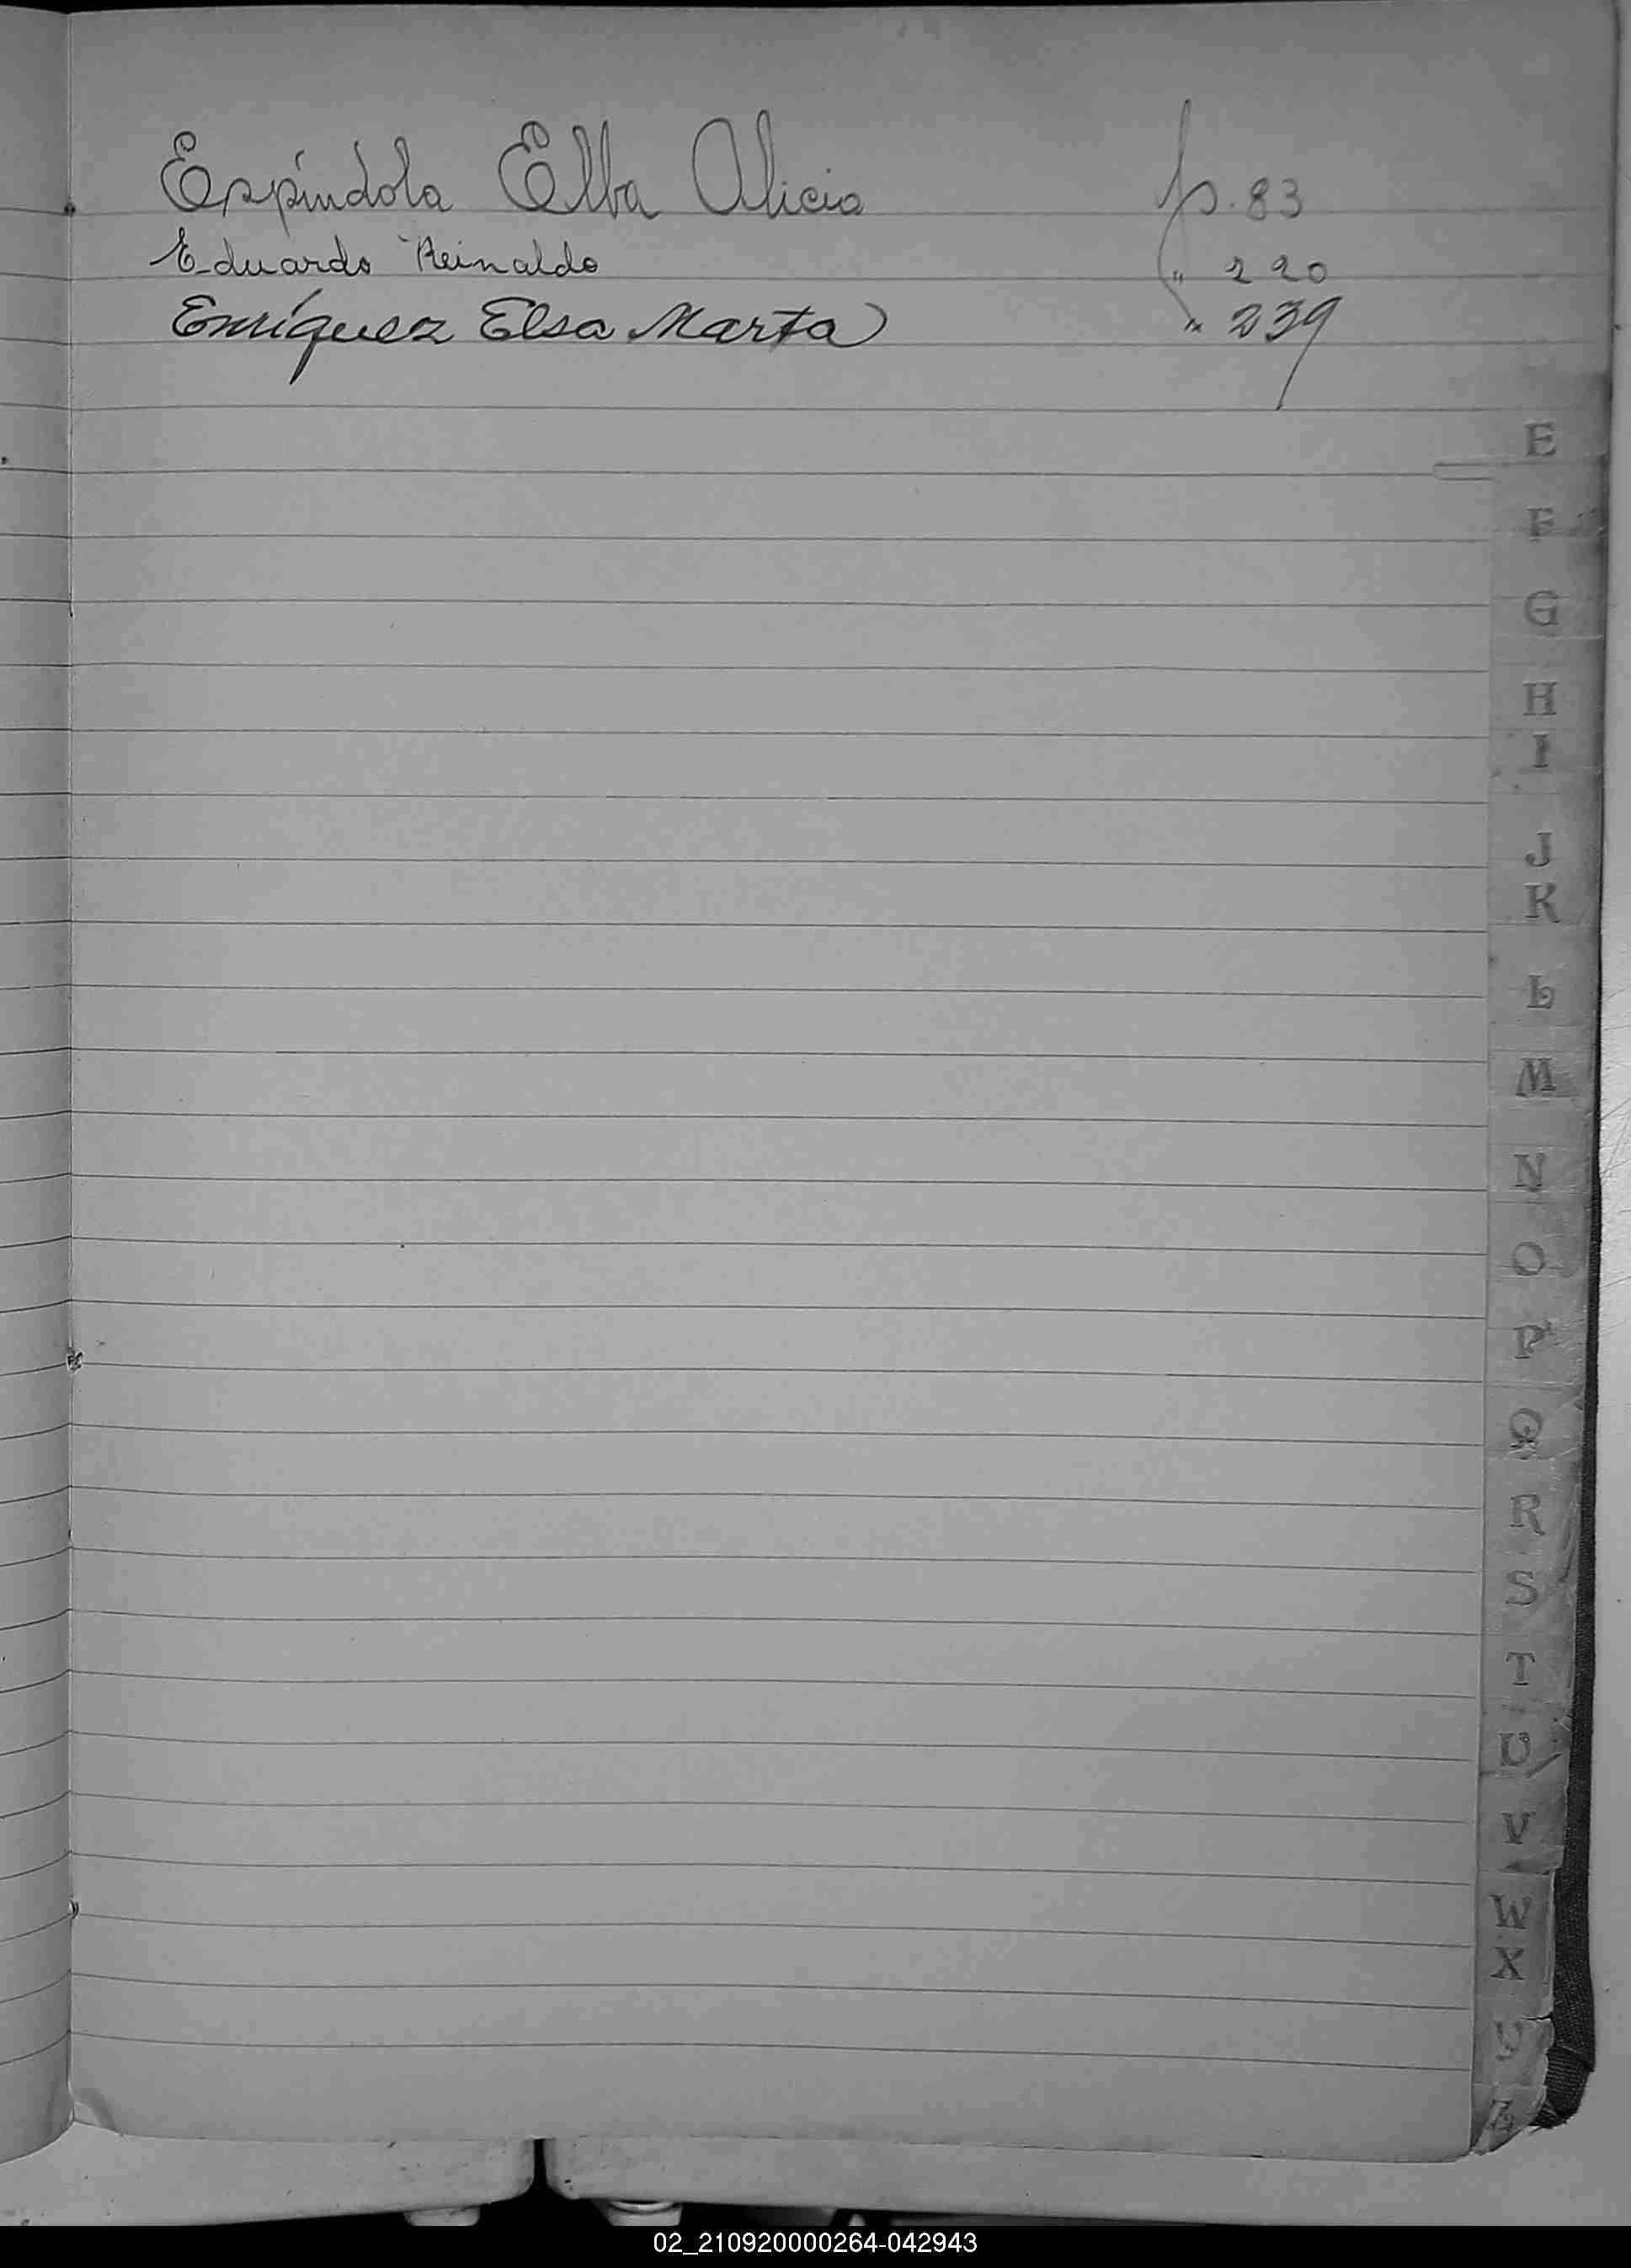 Espíndola Elba Alicia p. 83
Eduardo Reinaldo " 220
Enríquez Elsa Marta " 239
E
F
G
H
I
J
K
L
M
N
O
P
Q
R
S
T
U
V
W
X
Y
Z
02_210920000264-042943